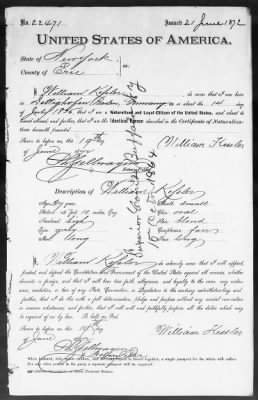 No. 22471
Issued 21 June 1872
UNITED STATES OF AMERICA.
State of New York
County of Erie
I, William Kesler, do swear that I was born
in Baden, Germany on or about the 14 day
of 18 that I am a Naturalized and Loyal Citizen of the United States, and about to
travel abroad; and further, that I am the Identical Person described in the Certificate of Naturaliza-
tion herewith presented.
Sworn to before me this 19th day
of June 1872
William Kessler
Notary Public
Superior Court Buffalo NY
1864
Description of William Kesler
Age years
Mouth small
Stature 5 feet 10 inches Eng.
Chin oval
Forehead high
Hair blond
Eyes gray
Complexion fair
Nose long
Face long
I, William Kesler, do solemnly swear that I will support,
protect, and defend the Constitution and Government of the United States against all enemies, whether
domestic or foreign, and that I will bear true faith, allegiance, and loyalty to the same, any ordin-
ance, resolution, or law of any State, Convention, or Legislature to the contrary notwithstanding; and
further, that I do this with a full determination, pledge, and purpose, without any mental reservation
or evasion whatsoever; and further, that I will well and faithfully perform all the duties which may
be required of me by law. So help me God.
Sworn to before me this 19th day
of June
William Kessler